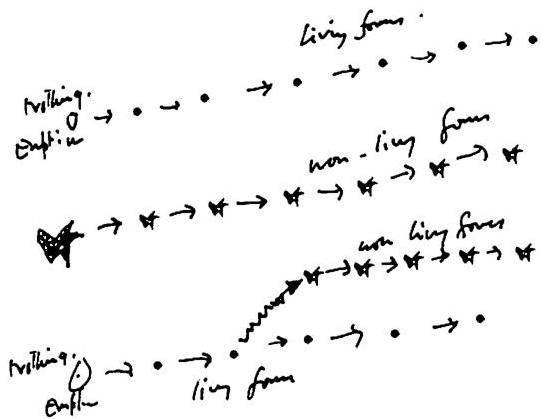 living forms.
Nothing.
non-living forms
non living forms
Nothing.
living forms